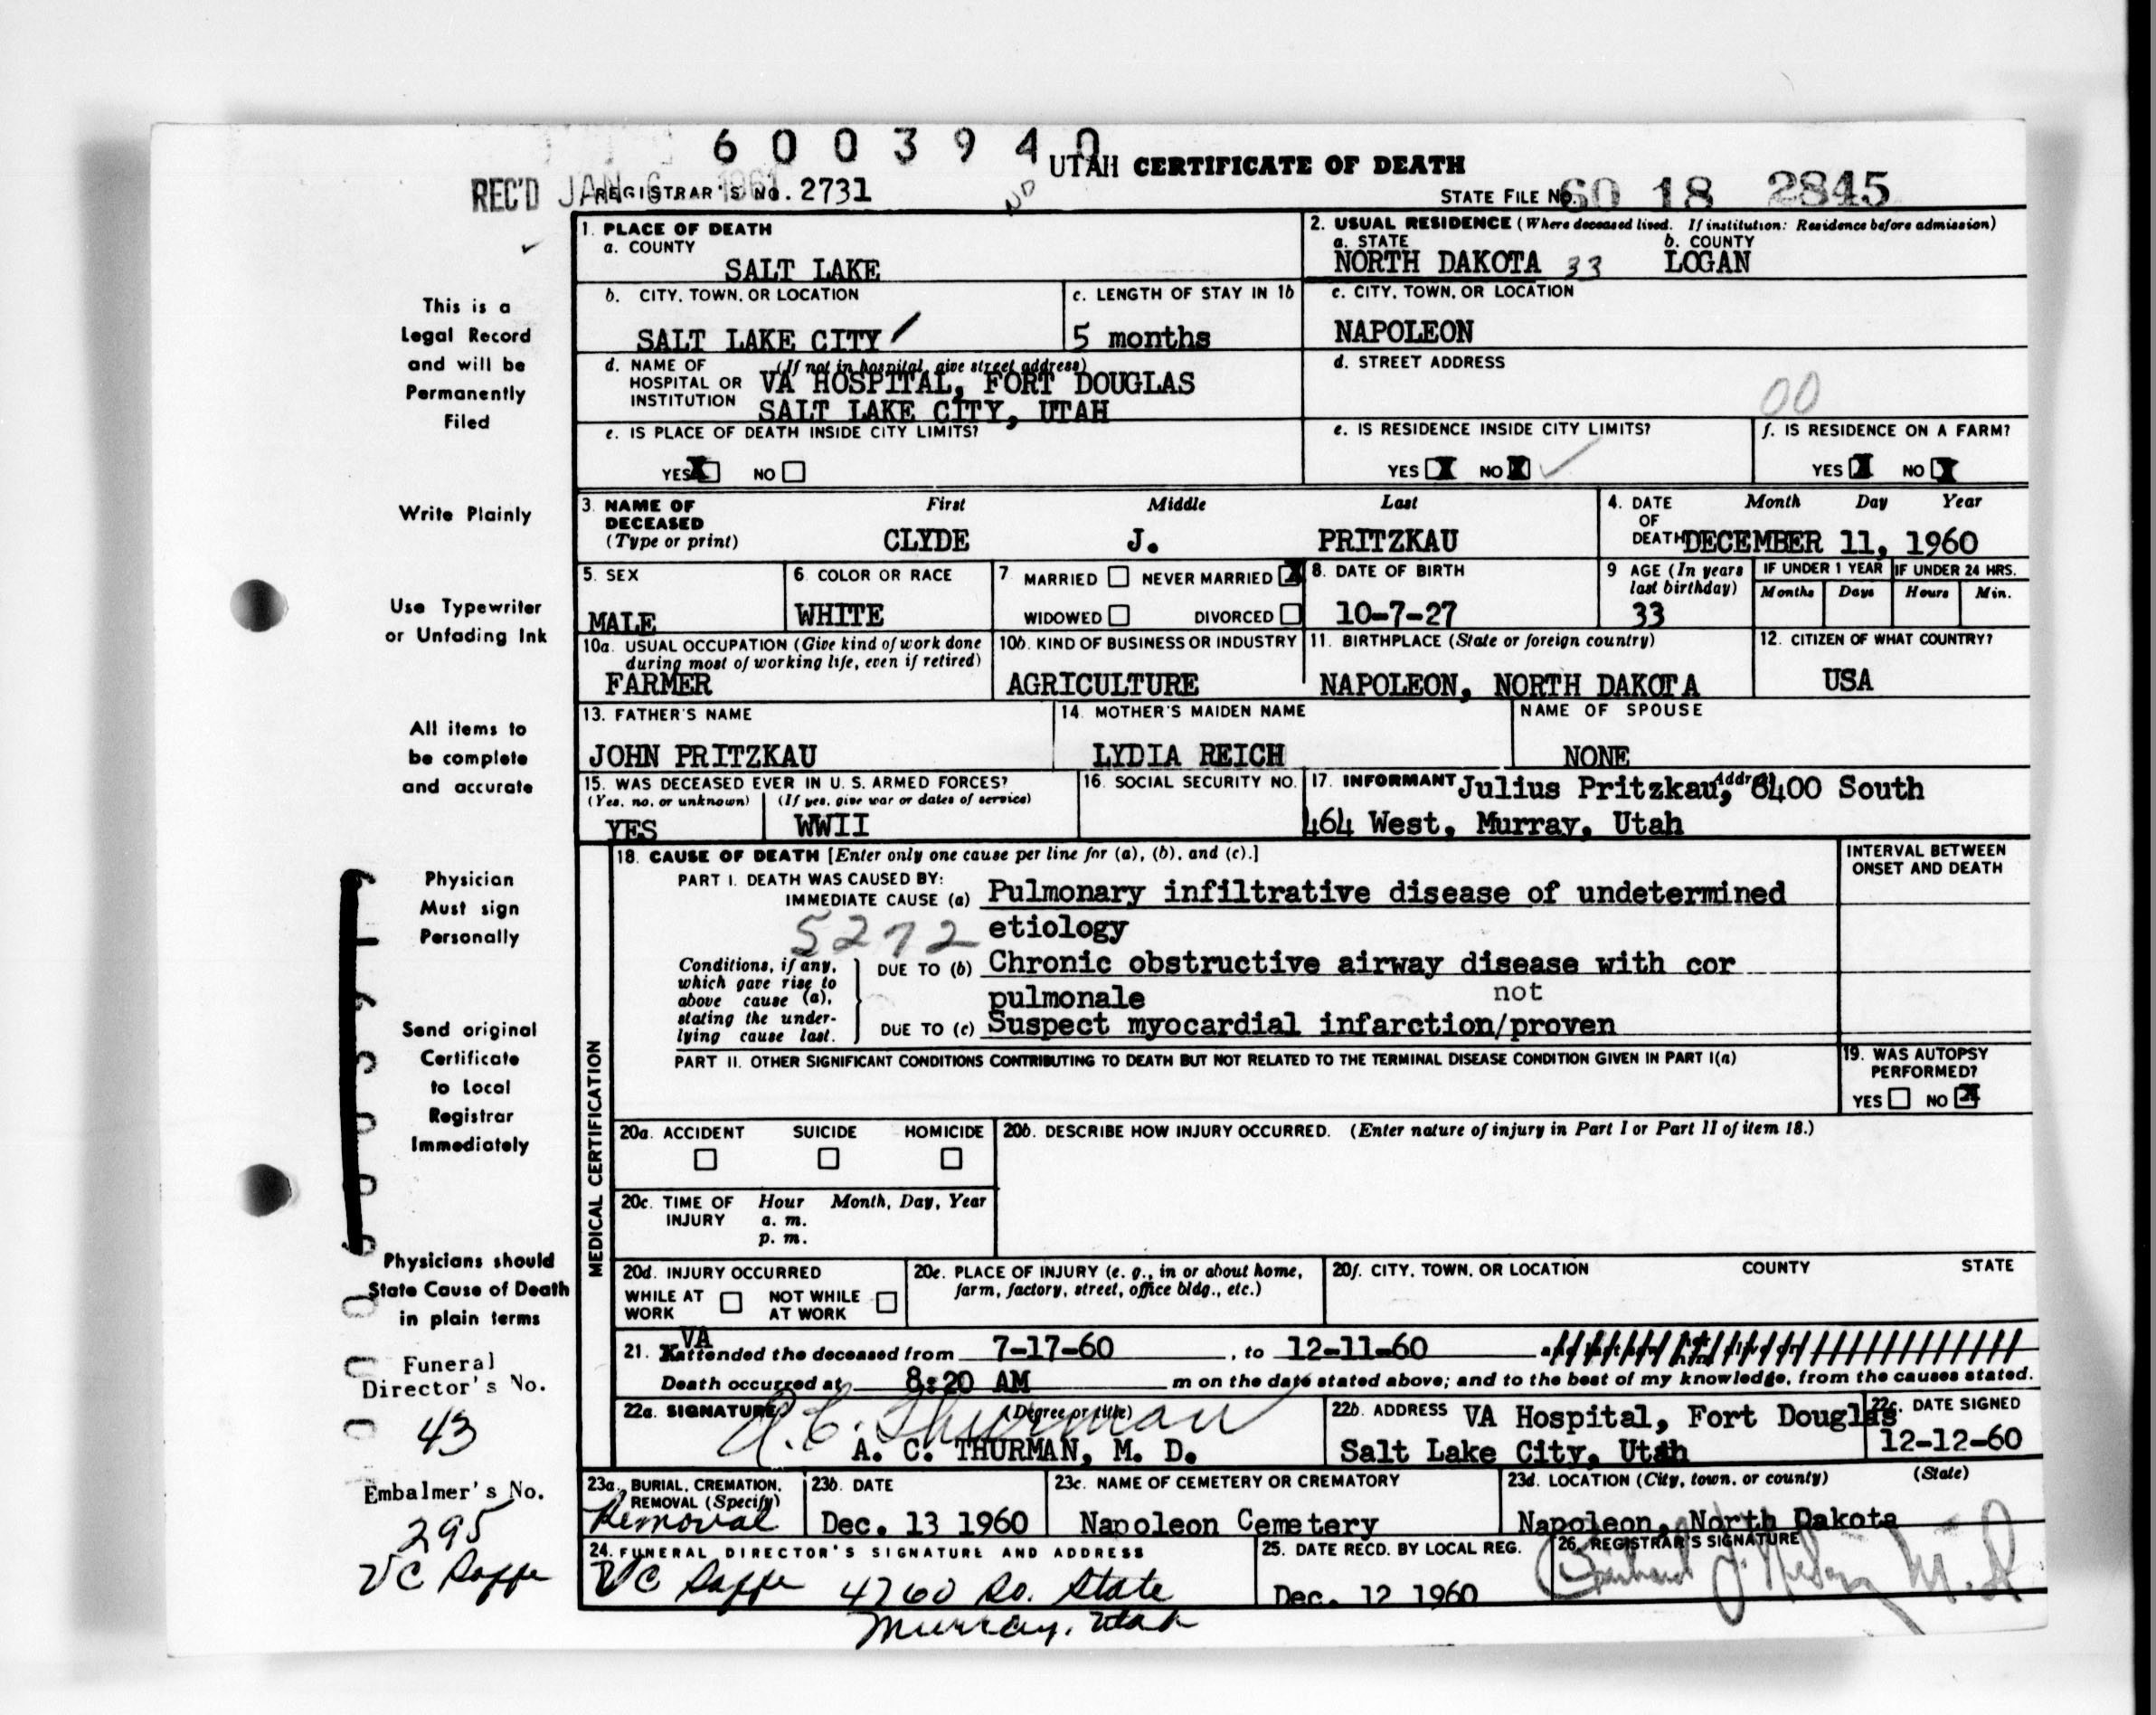 6 0 0 3 9 4 0
UTAH CERTIFICATE OF DEATH
REC'D JAN 6 1961
REGISTRAR'S NO. 2731
STATE FILE NO. 60 18 2845
1. PLACE OF DEATH
a. COUNTY
SALT LAKE
2. USUAL RESIDENCE (Where deceased lived. If institution: Residence before admission)
a. STATE b. COUNTY
NORTH DAKOTA 33 LOGAN
b. CITY, TOWN, OR LOCATION
SALT LAKE CITY
c. LENGTH OF STAY IN 1b
5 months
c. CITY, TOWN, OR LOCATION
NAPOLEON
d. NAME OF HOSPITAL OR INSTITUTION (If not in hospital, give street address)
VA HOSPITAL, FORT DOUGLAS
SALT LAKE CITY, UTAH
d. STREET ADDRESS
00
e. IS PLACE OF DEATH INSIDE CITY LIMITS?
YES X NO
e. IS RESIDENCE INSIDE CITY LIMITS?
YES X NO X
f. IS RESIDENCE ON A FARM?
YES X NO X
3. NAME OF DECEASED (Type or print)
First Middle Last
CLYDE J. PRITZKAU
4. DATE OF DEATH Month Day Year
DECEMBER 11, 1960
5. SEX
MALE
6. COLOR OR RACE
WHITE
7. MARRIED NEVER MARRIED X
WIDOWED DIVORCED
8. DATE OF BIRTH
10-7-27
9 AGE (In years last birthday)
33
IF UNDER 1 YEAR IF UNDER 24 HRS.
Months Days Hours Min.
10a. USUAL OCCUPATION (Give kind of work done during most of working life, even if retired)
FARMER
10b. KIND OF BUSINESS OR INDUSTRY
AGRICULTURE
11. BIRTHPLACE (State or foreign country)
NAPOLEON, NORTH DAKOTA
12. CITIZEN OF WHAT COUNTRY?
USA
13. FATHER'S NAME
JOHN PRITZKAU
14. MOTHER'S MAIDEN NAME
LYDIA REICH
NAME OF SPOUSE
NONE
15. WAS DECEASED EVER IN U. S. ARMED FORCES?
(Yes, no, or unknown) (If yes, give war or dates of service)
YES WWII
16. SOCIAL SECURITY NO.
17. INFORMANT Address
Julius Pritzkau, 6400 South
464 West, Murray, Utah
MEDICAL CERTIFICATION
18. CAUSE OF DEATH [Enter only one cause per line for (a), (b), and (c).]
INTERVAL BETWEEN ONSET AND DEATH
PART I. DEATH WAS CAUSED BY:
IMMEDIATE CAUSE (a) Pulmonary infiltrative disease of undetermined
5272 etiology
Conditions, if any, which gave rise to above cause (a), stating the underlying cause last.
DUE TO (b) Chronic obstructive airway disease with cor
pulmonale
not
DUE TO (c) Suspect myocardial infarction/proven
PART II. OTHER SIGNIFICANT CONDITIONS CONTRIBUTING TO DEATH BUT NOT RELATED TO THE TERMINAL DISEASE CONDITION GIVEN IN PART I(a)
19. WAS AUTOPSY PERFORMED?
YES NO X
20a. ACCIDENT SUICIDE HOMICIDE
20b. DESCRIBE HOW INJURY OCCURRED. (Enter nature of injury in Part I or Part II of item 18.)
20c. TIME OF INJURY Hour Month, Day, Year
a. m.
p. m.
20d. INJURY OCCURRED
WHILE AT WORK NOT WHILE AT WORK
20e. PLACE OF INJURY (e. g., in or about home, farm, factory, street, office bldg., etc.)
20f. CITY, TOWN, OR LOCATION COUNTY STATE
VA
21. attended the deceased from 7-17-60, to 12-11-60
Death occurred at 8:20 AM m on the date stated above; and to the best of my knowledge, from the causes stated.
22a. SIGNATURE (Degree or title)
A. C. Thurman
A. C. THURMAN, M. D.
22b. ADDRESS VA Hospital, Fort Douglas
Salt Lake City, Utah
22c. DATE SIGNED
12-12-60
23a. BURIAL, CREMATION, REMOVAL (Specify)
Removal
23b. DATE
Dec. 13 1960
23c. NAME OF CEMETERY OR CREMATORY
Napoleon Cemetery
23d. LOCATION (City, town, or county) (State)
Napoleon, North Dakota
24. FUNERAL DIRECTOR'S SIGNATURE AND ADDRESS
4760 So. State
Murray, Utah
25. DATE RECD. BY LOCAL REG.
Dec. 12 1960
26. REGISTRAR'S SIGNATURE
This is a
Legal Record
and will be
Permanently
Filed
Write Plainly
Use Typewriter
or Unfading Ink
All items to
be complete
and accurate
Physician
Must sign
Personally
Send original
Certificate
to Local
Registrar
Immediately
Physicians should
State Cause of Death
in plain terms
Funeral
Director's No.
43
Embalmer's No.
295